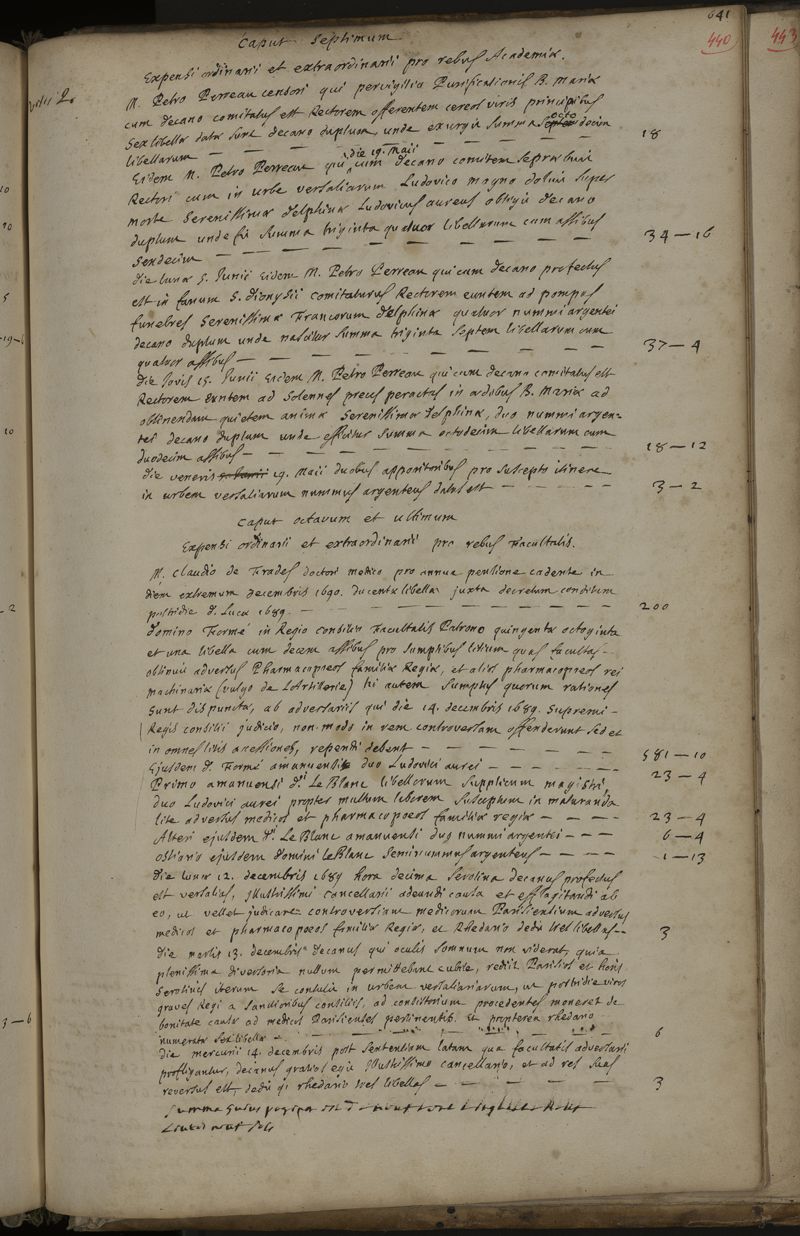 641
440
443
Caput Septimum
Expensi ordinarii et extraordinarii pro rebus Academiæ.
M. Petro Perreau censori qui pervigilio Purificationis B. Mariæ
cum decano comitatus est Rectorem offerentem cereos viris principibus
sex libellæ datæ sunt decano duplum, unde exurgit summa octo decim
libellarum — 18
Eidem M. Petro Perreau qui die 19. Maii cum decano comitem se præbuit
Rectori cum in urbe versaliarum Ludovico magno doluit super
morte Serenissimæ delphinæ Ludovicus aureus obtigit decano
duplum unde fit summa triginta quatuor libellarum cum assibus
sexdecim — 34 — 16
die lunæ 5. Junii Eidem M. Petro Perreau qui cum decano profectus
est in fanum S. dionysii comitaturus Rectorem euntem ad pompas
funebres Serenissimæ Francorum delphinæ quatuor nummi argentei
decano duplum unde nascitur summa triginta septem libellarum cum
quatuor assibus — 37 — 4
die Jovis 15. Junii Eidem M. Petro Perreau qui cum decano comitatus est
Rectorem euntem ad solennes preces peractas in ædibus B. Mariæ ad
obtinendam quietem animæ Serenissimæ delphinæ, duo nummi argen-
tei decano duplum unde efficitur summa octodecim libellarum cum
duodecim assibus — 18 — 12
die veneris 19. Maii duobus apparitoribus pro suscepto itinere
in urbem versaliarum nummus argenteus datus est — 3 — 2
Caput octavum et ultimum
Expensi ordinarii et extraordinarii pro rebus Facultatis.
M. Claudio de Frades doctori medico pro annua pensione cadente in
diem extremum decembris 1690. ducentæ libellæ juxta decretum conditum
postridie d. Lucæ 1689. — 200
domino Formé in Regio consilio Facultatis Patrono quingentæ octoginta
et una libellæ cum decem assibus pro sumptibus litium quas facultas
obtinuit adversus Pharmacopæos familiæ Regiæ, et alios pharmacopæos rei
machinariæ (vulgo de L'Artillerie) hi autem sumptus quorum rationes
sunt dispunctæ, ab adversariis qui die 14. decembris 1689. supremi
Regis consilii judicio, non modo in rem controversam offenderunt sed et
in omnes litis accessiones, rependi debent — 581 — 10
Ejusdem d. Formé amanuensi duo Ludovici aurei — 23 — 4
Primo amanuensi d.ni Le Blanc libellorum supplicum magistri,
duo Ludovici aurei propter multum laborem susceptum in maturanda
lite adversus medicos et pharmacopoeos familiæ regiæ — 23 — 4
Alteri ejusdem d.ni Le Blanc amanuensi duo nummi argentei — 6 — 4
Ostiario ejusdem domini le Blanc seminummus argenteus — 1 — 13
die lunæ 12. decembris 1689 hora decima serotina decanus profectus
est versalias, Illustrissimi Cancellarii adeundi causa et efflagitandi ab
eo, ut vellet judicare controversiam medicorum Parisiensium adversus
medicos et pharmacopoeos familiæ Regiæ, et Rhedario dedit tres libellas — 3
die martis 13. decembris decanus qui oculis somnum non viderat, quia
plenissima diversoria nullum permittebant cubile, rediit Parisios et horis
serotinis iterum se contulit in urbem versaliarum, ut postridie viros
graves Regi a sanctioribus consiliis, ad consistorium procedentes moneret de
bonitate causæ ad medicos Parisienses pertinentis. Et propterea rhedario
numeratæ sex libellæ — 6
die mercurii 14. decembris post sententiam latam qua facultatis adversarii
profligantur, decanus gratias egit Illustrissimo cancellario, et ad res suas
reversus est, dedit qz rhedario tres libellas — 3
Summa hujus paginæ est